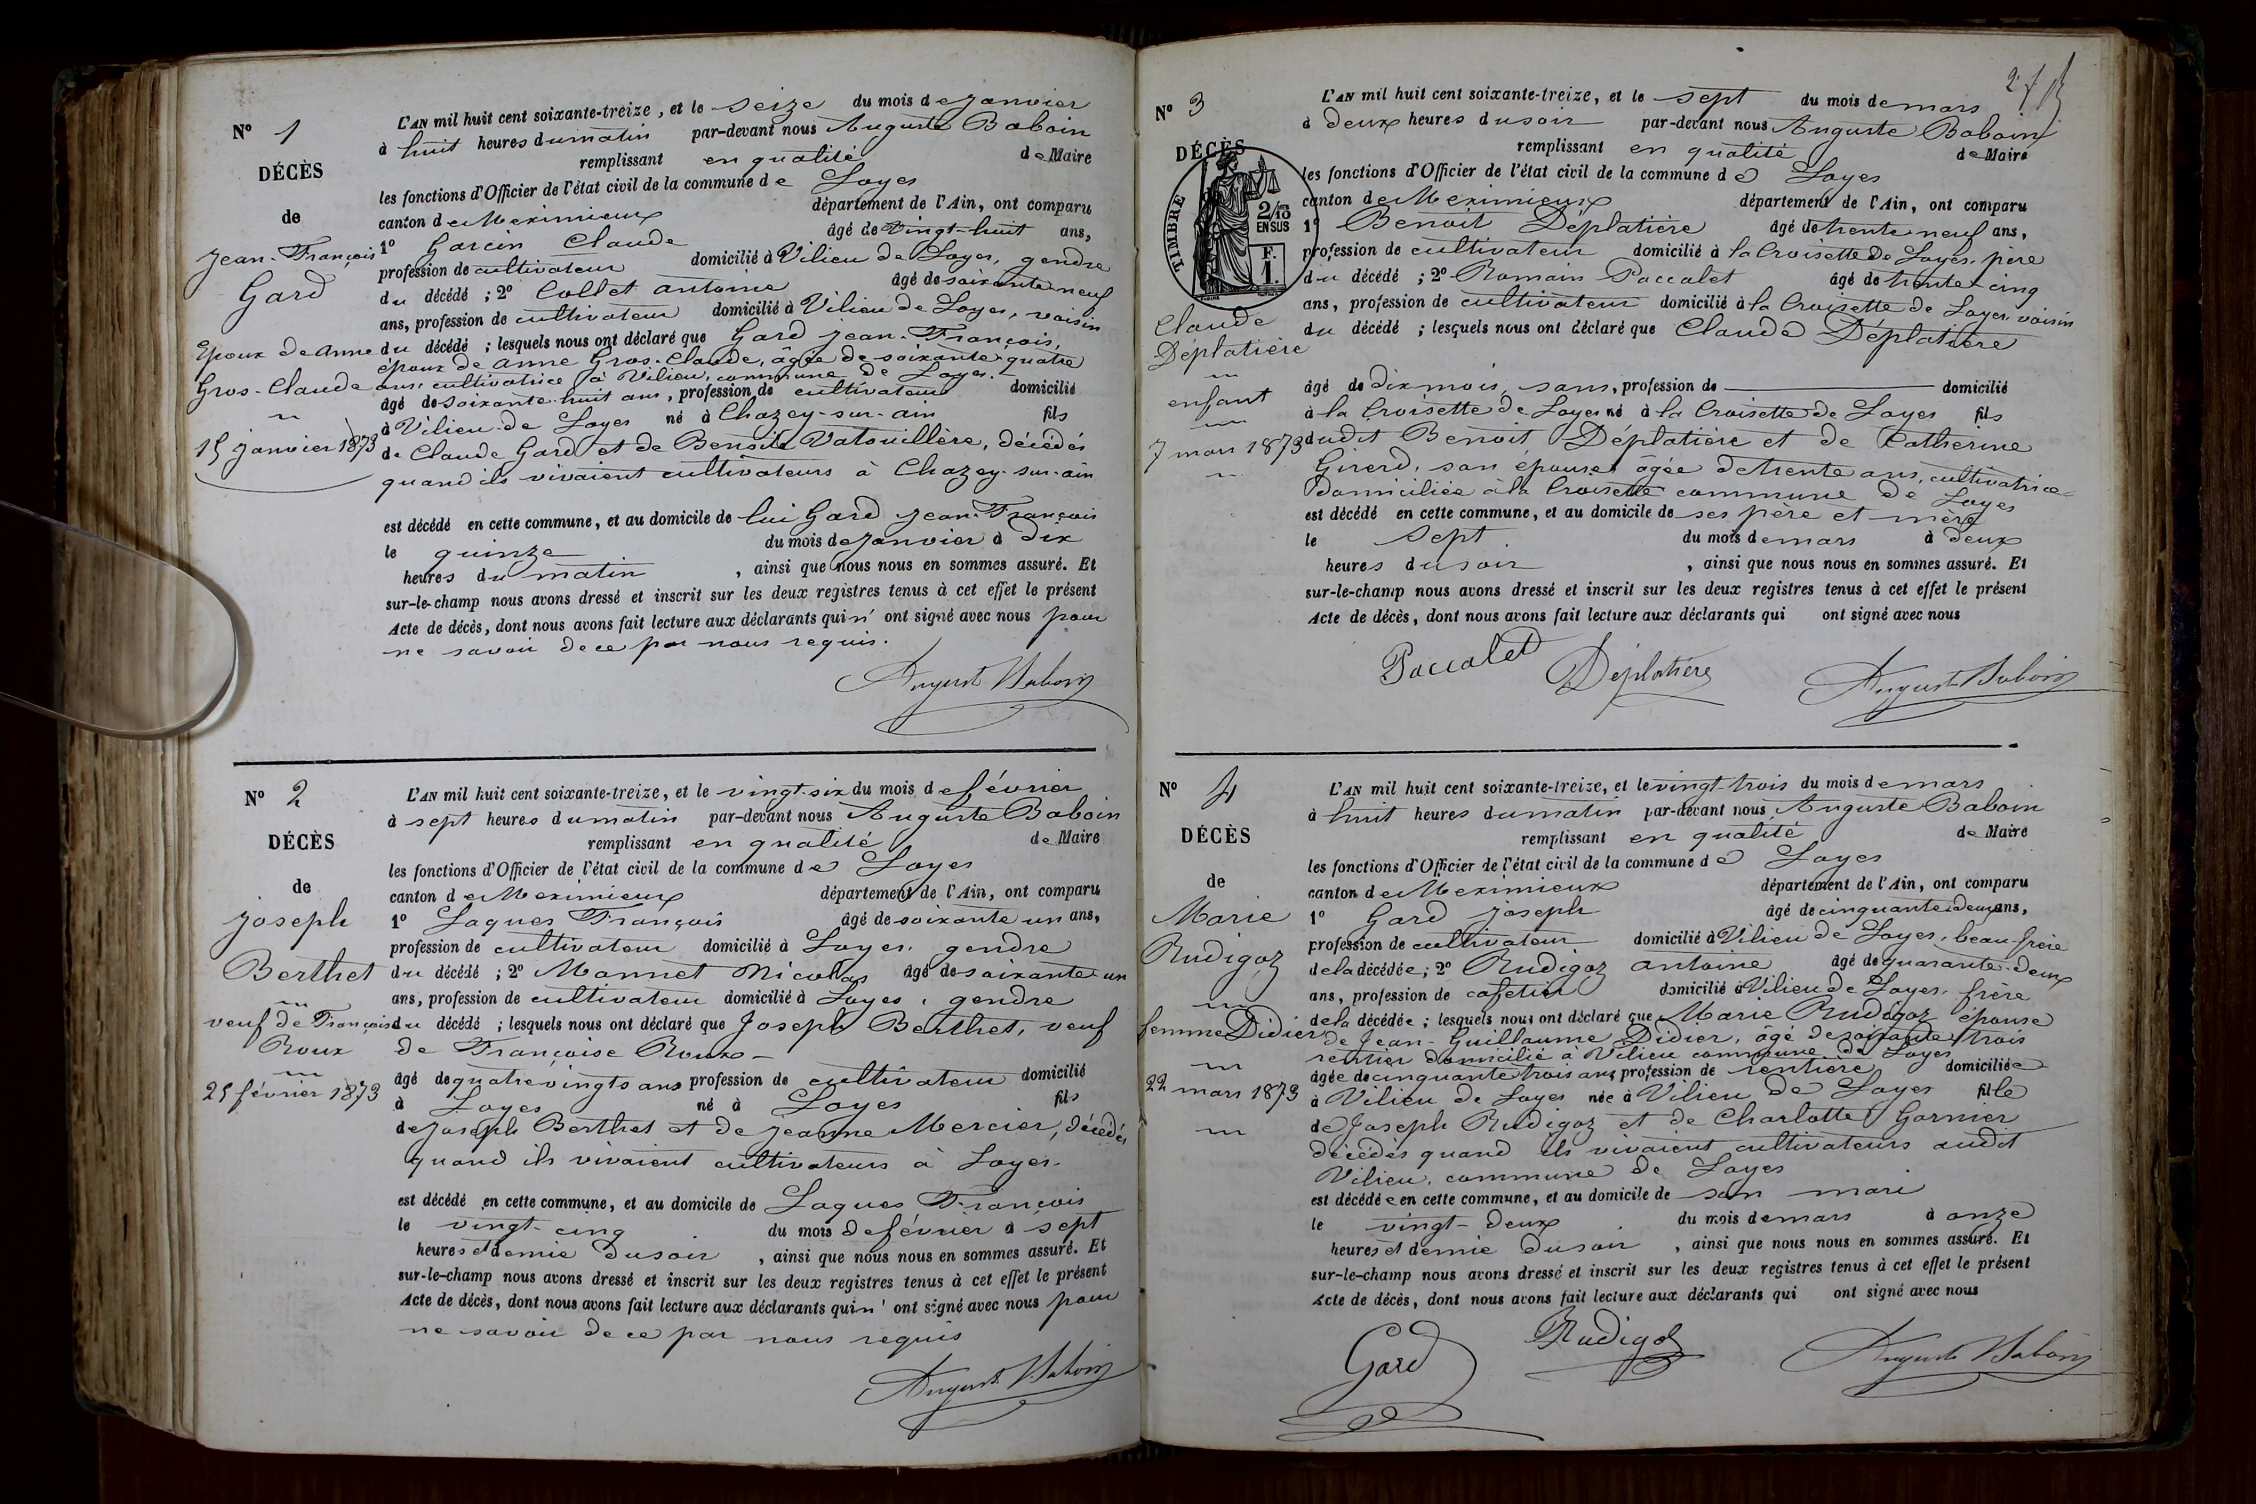 N° 1
DÉCÈS
de
Jean-François
Gard
Epoux de Anne
Gros-Claude
15 janvier 1873
L'AN mil huit cent soixante-treize, et le seize du mois de janvier
à huit heures du matin par-devant nous Auguste Baboin
remplissant en qualité de Maire
les fonctions d'Officier de l'état civil de la commune de Loyes
canton de Meximieux département de l'Ain, ont comparu
1° Garcin Claude âgé de vingt-huit ans,
profession de cultivateur domicilié à Vilieu de Loyes, gendre
du décédé ; 2° Collet antoine âgé de soixante neuf
ans, profession de cultivateur domicilié à Vilieu de Loyes, voisin
du décédé ; lesquels nous ont déclaré que Gard Jean-François,
époux de anne Gros-Claude, âgée de soixante-quatre
ans, cultivatrice à Vilieu, commune de Loyes.
âgé de soixante-huit ans, profession de cultivateur domicilié
à Vilieu de Loyes né à Chazey-sur-ain fils
de Claude Gard et de Benoite Vatouillère, décédés
quand ils vivaient cultivateurs à Chazey-sur-ain
est décédé en cette commune, et au domicile de lui Gard Jean-François
le quinze du mois de janvier à dix
heures du matin, ainsi que nous nous en sommes assuré. Et
sur-le-champ nous avons dressé et inscrit sur les deux registres tenus à cet effet le présent
Acte de décès, dont nous avons fait lecture aux déclarants qui n' ont signé avec nous pour
ne savoir de ce par nous requis.
Auguste Baboin
N° 2
DÉCÈS
de
Joseph
Berthet
veuf de François
Roux
25 février 1873
L'AN mil huit cent soixante-treize, et le vingt-six du mois de février
à sept heures du matin par-devant nous Auguste Baboin
remplissant en qualité de Maire
les fonctions d'Officier de l'état civil de la commune de Loyes
canton de Meximieux département de l'Ain, ont comparu
1° Laques François âgé de soixante un ans,
profession de cultivateur domicilié à Loyes, gendre
du décédé ; 2° Monnet Nicolas âgé de soixante-un
ans, profession de cultivateur domicilié à Loyes, gendre
du décédé ; lesquels nous ont déclaré que Joseph Berthet, veuf
de Françoise Roux -
âgé de quatrevingts ans profession de cultivateur domicilié
à Loyes né à Loyes fils
de Joseph Berthet et de Jeanne Mercier, décédés
quand ils vivaient cultivateurs à Loyes.
est décédé en cette commune, et au domicile de Laques François
le vingt-cinq du mois de février à sept
heures et demie du soir, ainsi que nous nous en sommes assuré. Et
sur-le-champ nous avons dressé et inscrit sur les deux registres tenus à cet effet le présent
Acte de décès, dont nous avons fait lecture aux déclarants qui n' ont signé avec nous pour
ne savoir de ce par nous requis
Auguste Baboin
N° 3
DÉCÈS
TIMBRE
2/10
EN SUS
F.
1.
Claude
Déplatière
enfant
7 mars 1873
L'AN mil huit cent soixante-treize, et le sept du mois de mars
à deux heures du soir par-devant nous Auguste Baboin
remplissant en qualité de Maire
les fonctions d'Officier de l'état civil de la commune de Loyes
canton de Meximieux département de l'Ain, ont comparu
1° Benoit Déplatière âgé de trente neuf ans,
profession de cultivateur domicilié à la Croisette de Loyes, père
du décédé ; 2° Romain Paccalet âgé de trente-cinq
ans, profession de cultivateur domicilié à la Croisette de Loyes voisin
du décédé ; lesquels nous ont déclaré que Claude Déplatière
âgé de dix mois, sans, profession de domicilié
à la Croisette de Loyes né à la Croisette de Loyes fils
dudit Benoit Déplatière et de Catherine
Girerd, son épouse, âgée de trente ans, cultivatrice
domiciliée à la Croisette commune de Loyes
est décédé en cette commune, et au domicile de ses père et mère
le sept du mois de mars à deux
heures du soir, ainsi que nous nous en sommes assuré. Et
sur-le-champ nous avons dressé et inscrit sur les deux registres tenus à cet effet le présent
Acte de décès, dont nous avons fait lecture aux déclarants qui ont signé avec nous
Paccalet Déplatière Auguste Baboin
N° 4
DÉCÈS
de
Marie
Rudigoz
femme Didier
22 mars 1873
L'AN mil huit cent soixante-treize, et le vingt-trois du mois de mars
à huit heures du matin par-devant nous Auguste Baboin
remplissant en qualité de Maire
les fonctions d'Officier de l'état civil de la commune de Loyes
canton de Meximieux département de l'Ain, ont comparu
1° Gard Joseph âgé de cinquante deux ans,
profession de cultivateur domicilié à Vilieu de Loyes, beau-frère
de la décédée ; 2° Rudigoz antoine âgé de quarante-deux
ans, profession de cafetier domicilié à Vilieu de Loyes, frère
de la décédée ; lesquels nous ont déclaré que Marie Rudigoz épouse
de Jean-Guillaume Didier, âgé de soixante trois
rentier domicilié à Vilieu commune de Loyes
âgée de cinquante trois ans profession de rentière domiciliée
à Vilieu de Loyes née à Vilieu de Loyes fille
de Joseph Rudigoz et de Charlotte Garnier
décédés quand ils vivaient cultivateurs audit
Vilieu, commune de Loyes
est décédée en cette commune, et au domicile de son mari
le vingt-deux du mois de mars à onze
heures et demie du soir, ainsi que nous nous en sommes assuré. Et
sur-le-champ nous avons dressé et inscrit sur les deux registres tenus à cet effet le présent
Acte de décès, dont nous avons fait lecture aux déclarants qui ont signé avec nous
Gard Rudigoz Auguste Baboin